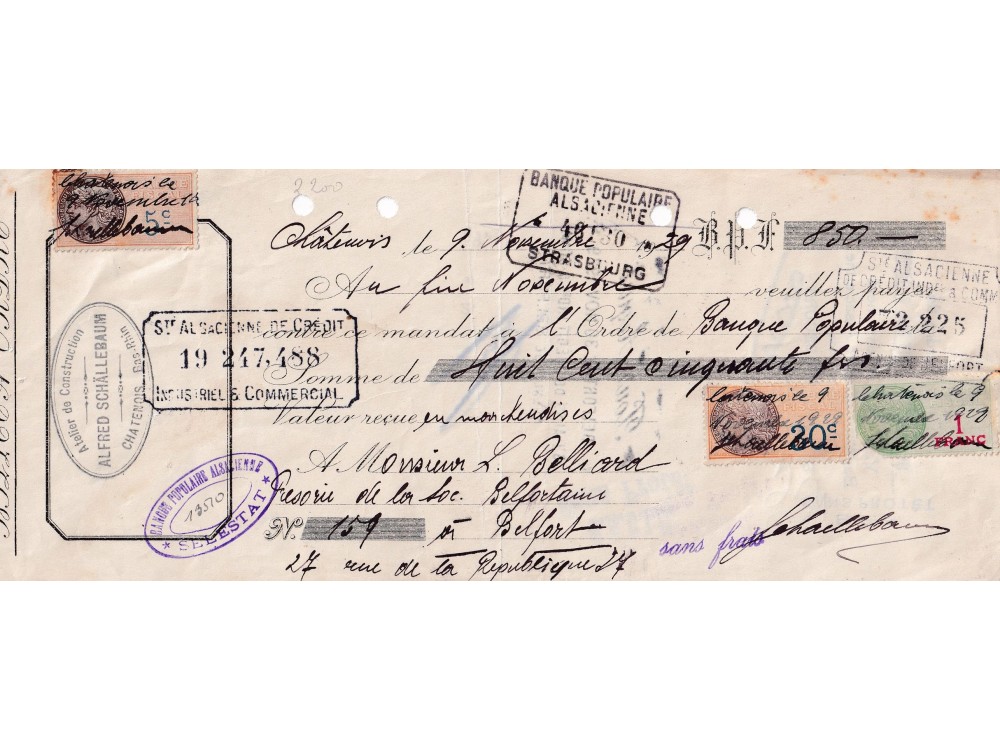 2200
Châtenois le
9 Novembre
5c
Schaellebaum
BANQUE POPULAIRE
ALSACIENNE
STRASBOURG
Châtenois le 9. Novembre 1929 B.P.F 850.—
Au fin Novembre veuillez payer
Sté ALSACIENNE
DE CRÉDIT INDEL & COMM
73 225
BELFORT
contre ce mandat à l'Ordre de Banque Populaire
Somme de Huit Cent cinquante frs.
Valeur reçue en marchendises
Sté ALSACIENNE DE CRÉDIT
19 247,488
INDUSTRIEL & COMMERCIAL
Atelier de Construction
ALFRED SCHÄLLEBAUM
CHATENOIS, Bas-Rhin
Chatenois le 9
Novembre 1929
20c
Schaellebaum
Chatenois le 9
Novembre 1929
1
FRANC
Schaellebaum
A Monsieur L. Belliard
Tresorie de la Soc. Belfortaine
BANQUE POPULAIRE ALSACIENNE
13570
* SELESTAT *
No. 159 à Belfort
sans frais
Schaellebaum
27 rue de la République 27